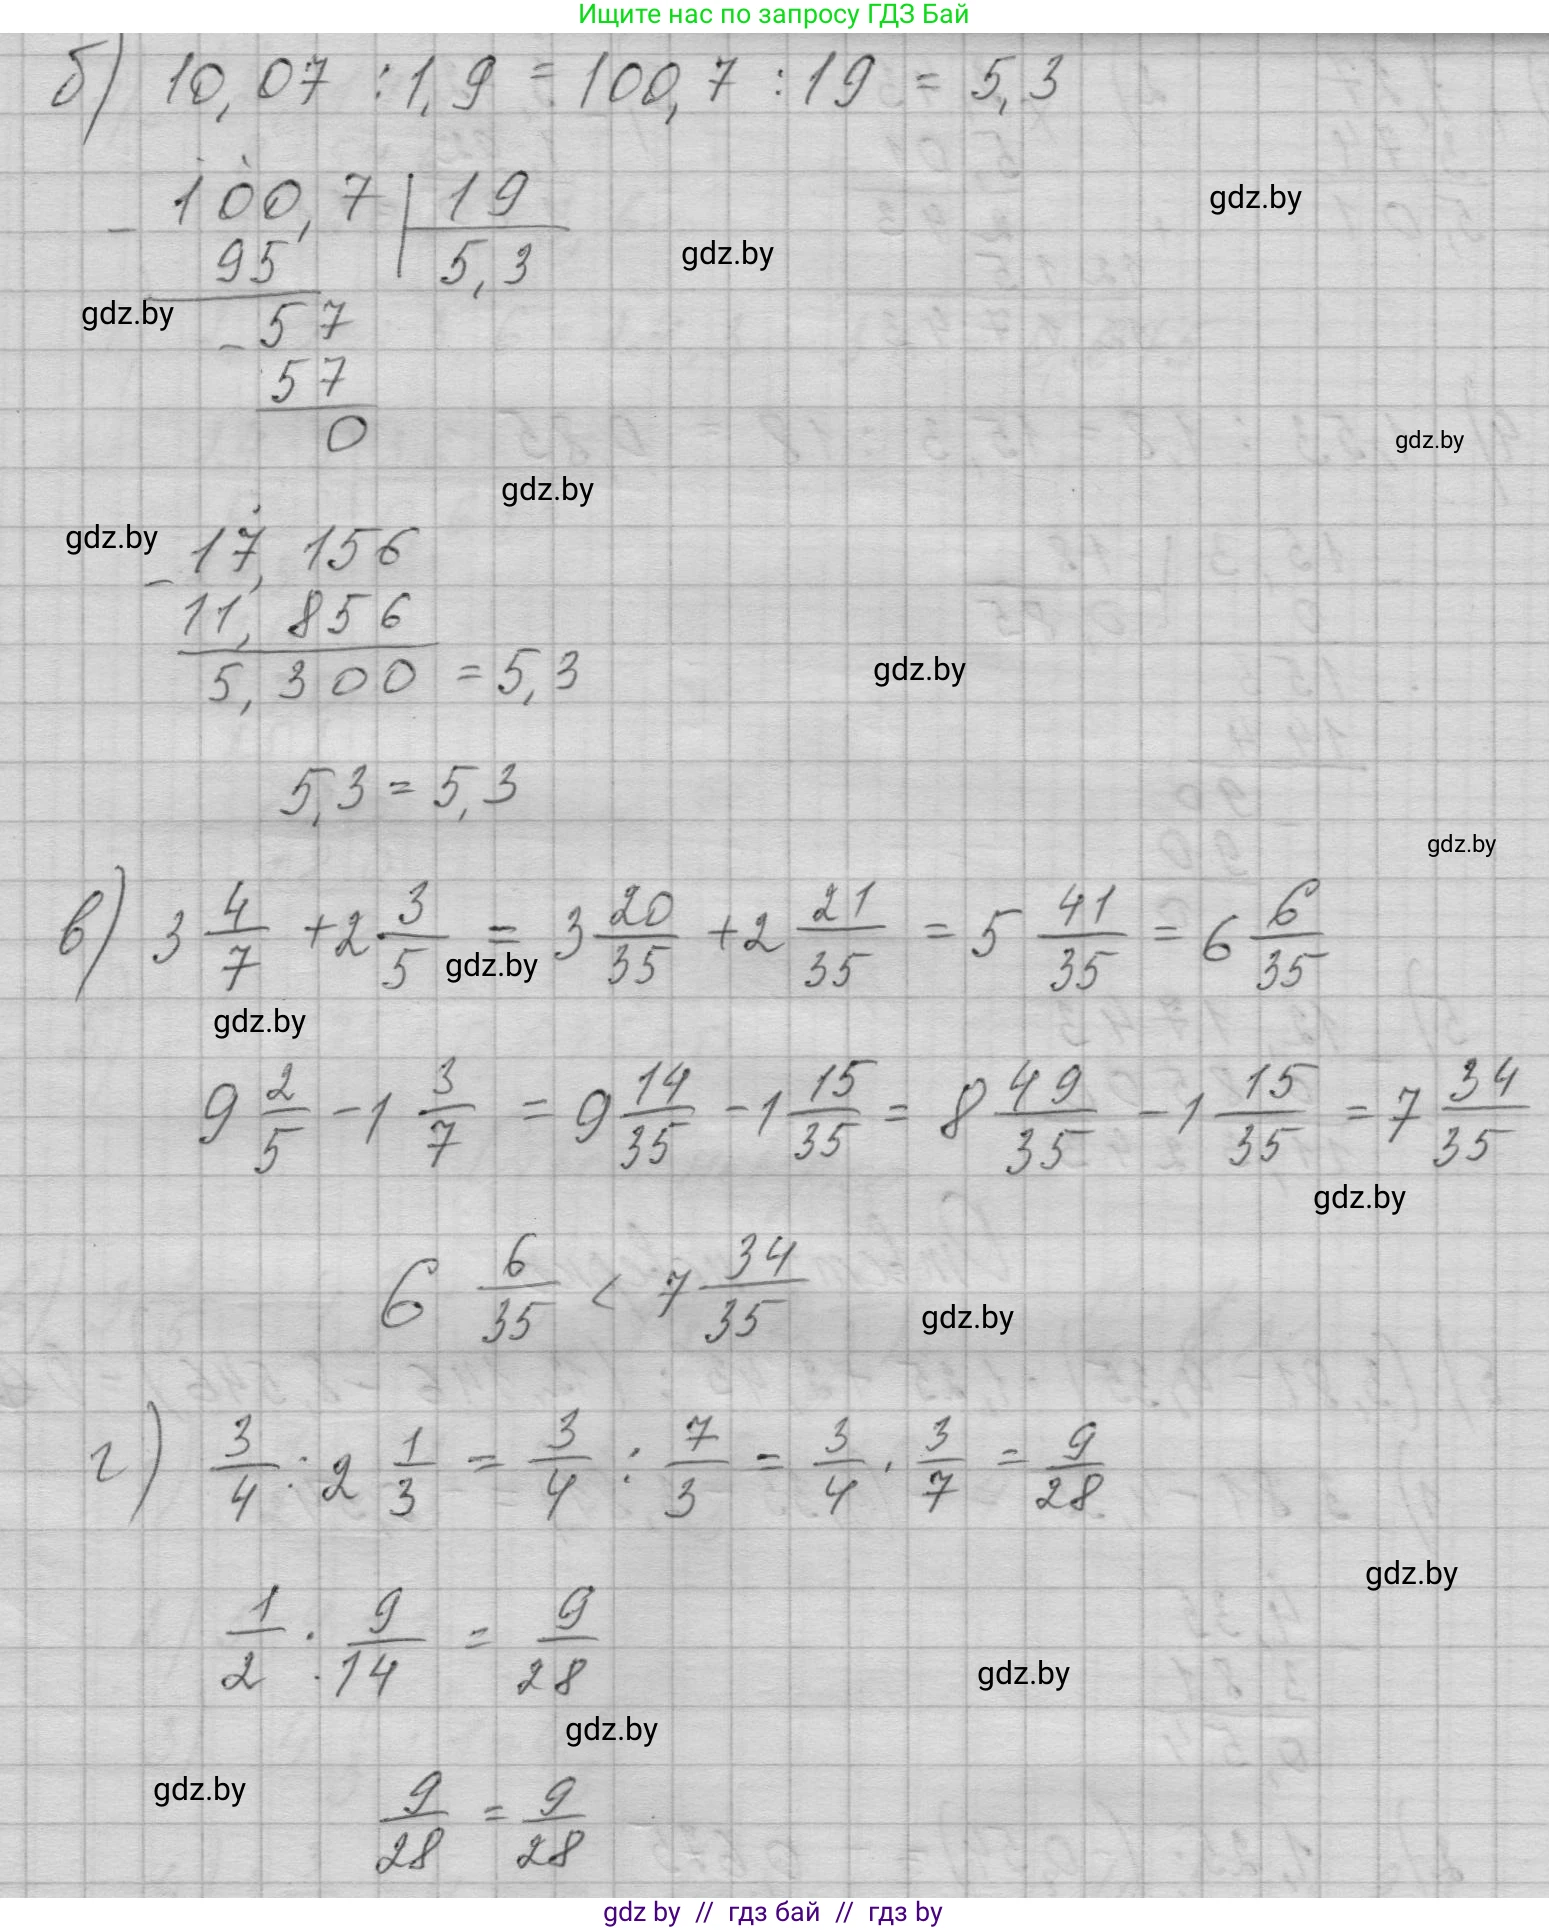 Ищите нас по запросу ГДЗ Бай
б) 10,07 : 1,9 = 100,7 : 19 = 5,3
gdz.by
- 100,7 | 19
gdz.by
95 5,3
gdz.by
- 57
57
0
gdz.by
gdz.by
gdz.by
- 17,156
11,856
5,300 = 5,3
gdz.by
5,3 = 5,3
gdz.by
в) 3 4/7 + 2 3/5 = 3 20/35 + 2 21/35 = 5 41/35 = 6 6/35
gdz.by
gdz.by
9 2/5 - 1 3/7 = 9 14/35 - 1 15/35 = 8 49/35 - 1 15/35 = 7 34/35
gdz.by
6 6/35 < 7 34/35
gdz.by
г) 3/4 : 2 1/3 = 3/4 : 7/3 = 3/4 · 3/7 = 9/28
gdz.by
1/2 · 9/14 = 9/28
gdz.by
gdz.by
gdz.by
9/28 = 9/28
gdz by // гдз бай // гдз by